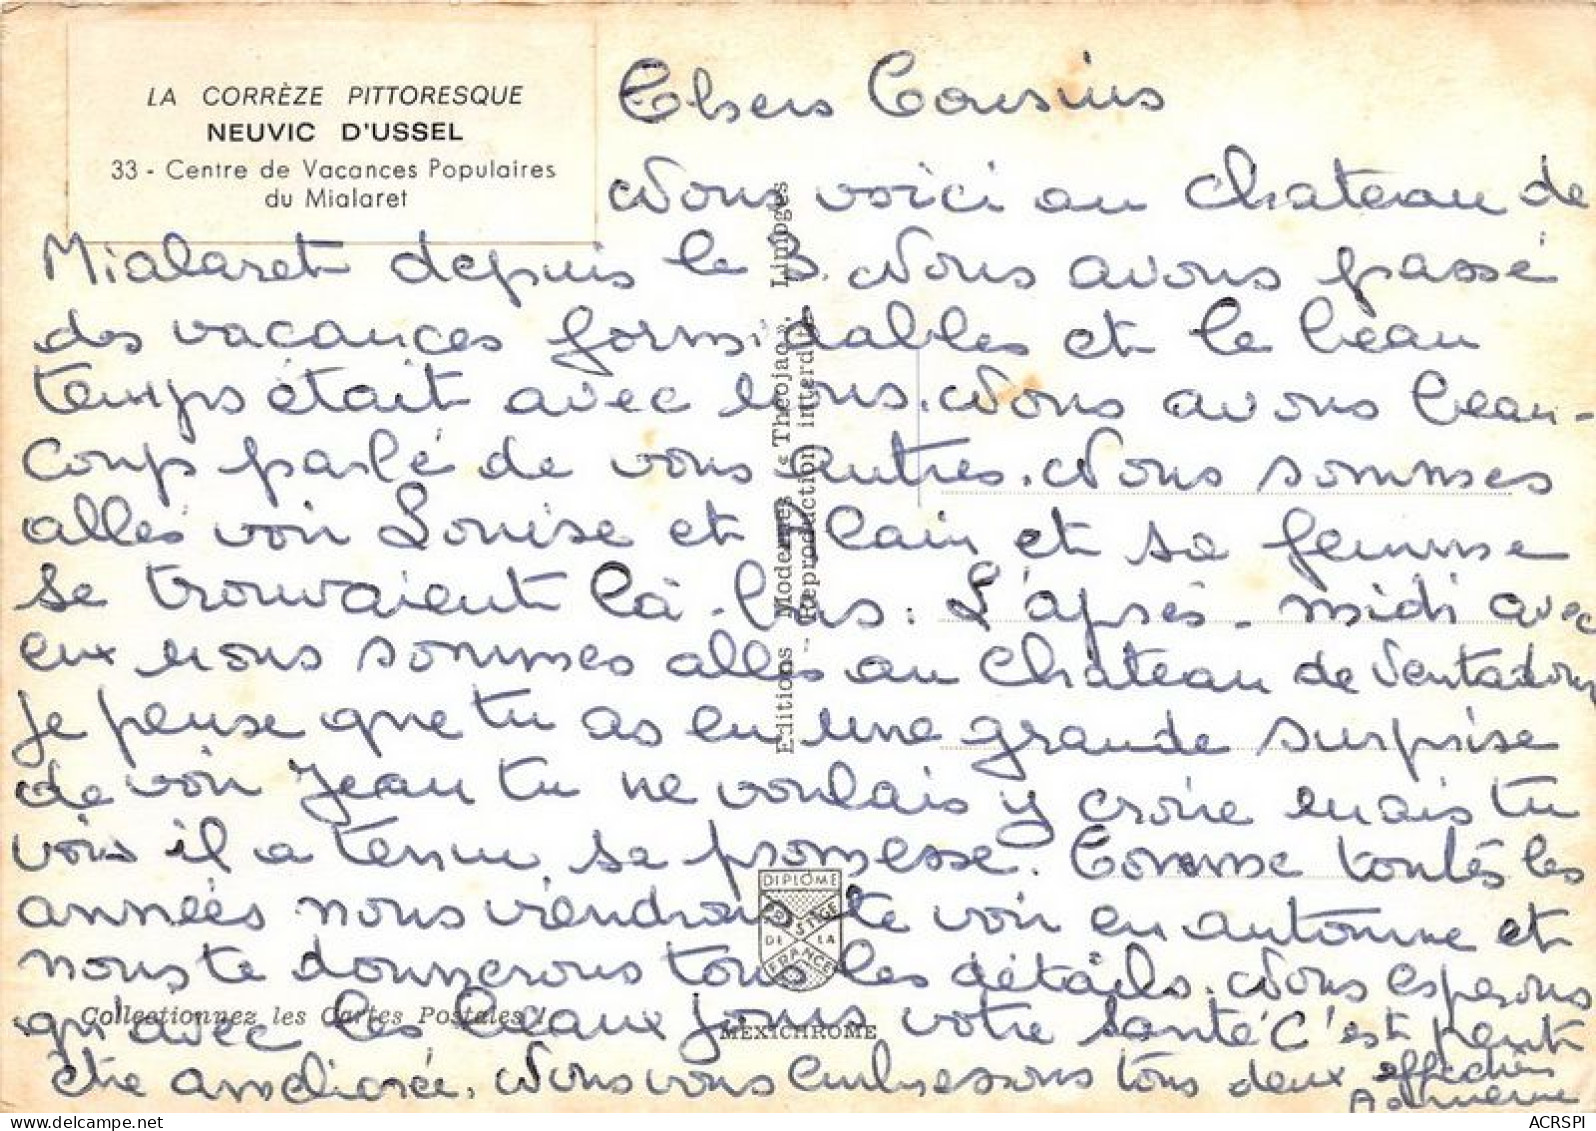 LA CORRÈZE PITTORESQUE
NEUVIC D'USSEL
33 - Centre de Vacances Populaires
du Mialaret
Chers Cousins
Nous voici au Chateau de
Mialaret depuis le 3. Nous avons passé
des vacances formidables et le beau
temps était avec nous. Nous avons beau-
coup parlé de vous autres. Nous sommes
allés voir Louise et Alain et sa femme
se trouvaient là-bas. L'après-midi avec
eux nous sommes allés au Château de Ventadour
je pense que tu as eu une grande surprise
de voir Jean tu ne voulais y croire mais tu
vois il a tenu sa promesse. Comme toutes les
années nous viendrons te voir en automne et
nous te donnerons tous les détails. Nous espérons
qu'avec les beaux jours votre santé c'est peut
être améliorée. Nous vous embrassons tous deux
affection
Editions Modernes (« Théojac », Limoges
Reproduction interdite
DIPLÔME
PRESTIGE
DE LA
FRANCE
Collectionnez les Cartes Postales !
MEXICHROME
ACRSPI